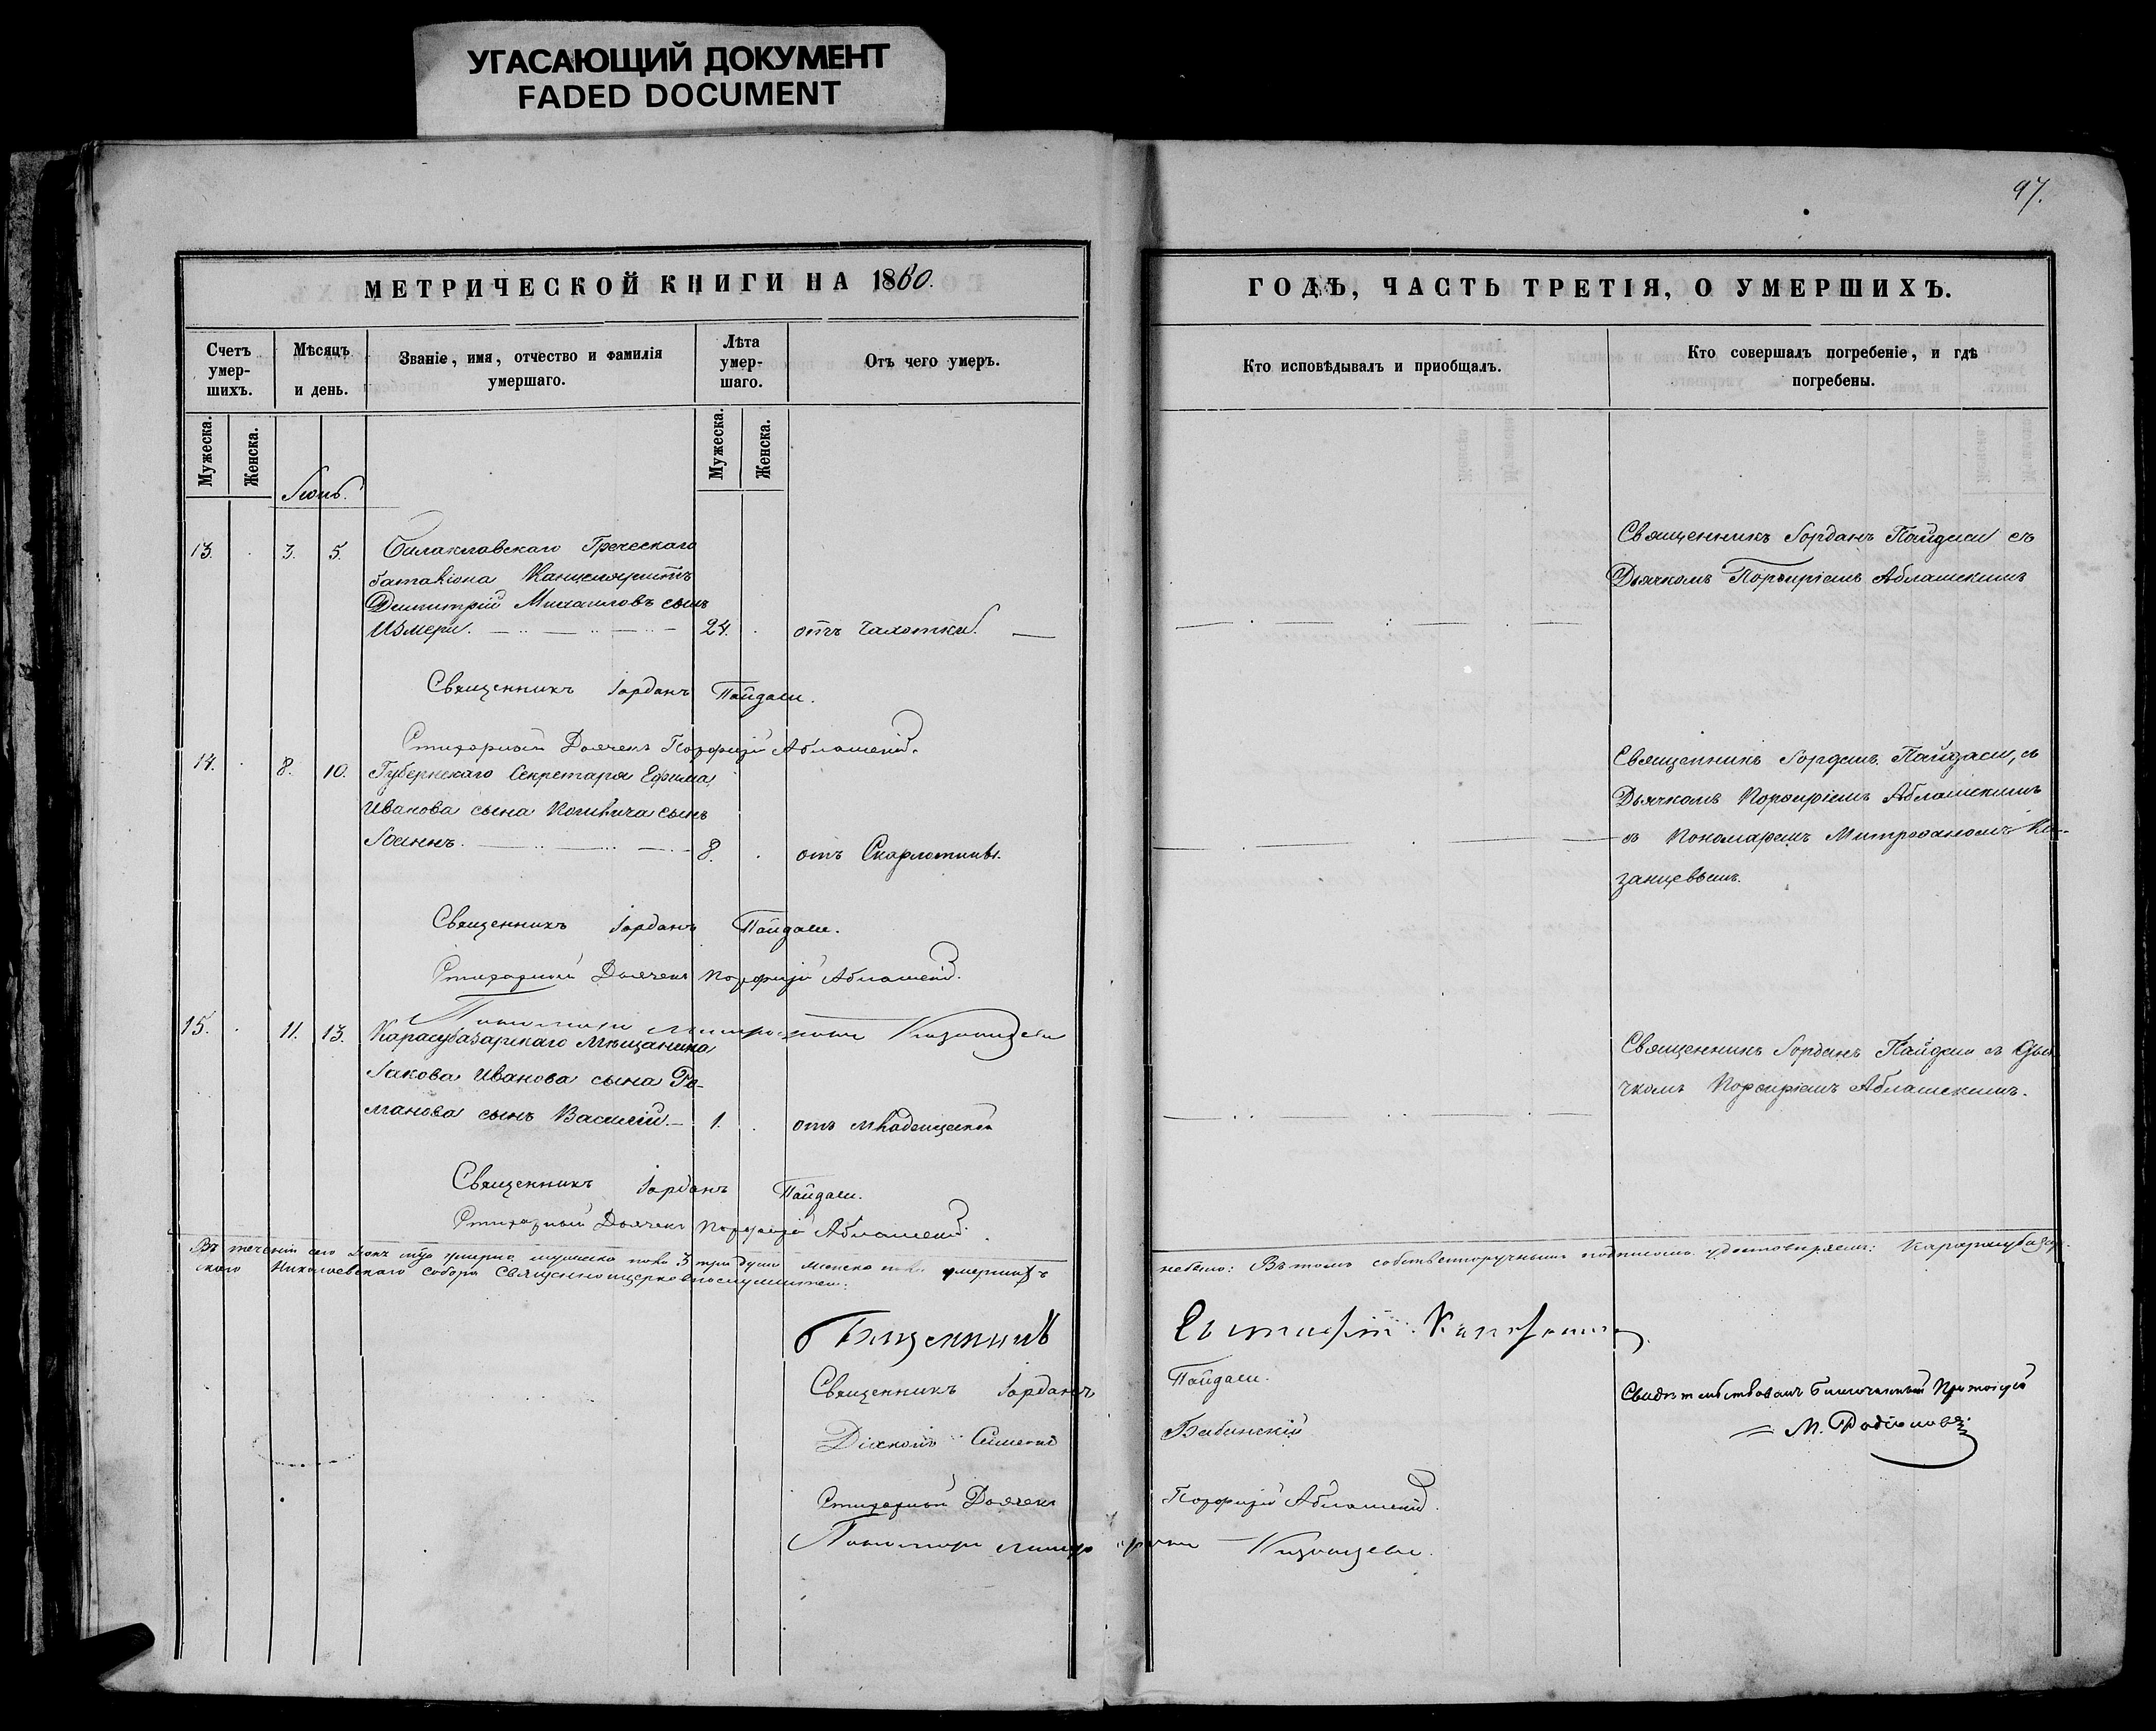 УГАСАЮЩИЙ ДОКУМЕНТ
FADED DOCUMENT
97.
МЕТРИЧЕСКОЙ КНИГИ НА 1860.
ГОДЪ, ЧАСТЬ ТРЕТІЯ, О УМЕРШИХЪ.
Счетъ умер-шихъ.
Мѣсяцъ и день.
Званіе, имя, отчество и фамилія умершаго.
Лѣта умер-шаго.
Отъ чего умеръ.
Кто исповѣдывалъ и приобщалъ.
Кто совершалъ погребеніе, и гдѣ погребены.
Мужеска.
Женска.
Мужеска.
Женска.
13. 3. 5. Балаклавскаго Греческаго
баталіона Канцеляристъ
Димитрій Михаиловъ сынъ
Измери. 24. отъ чахотки.
Священникъ Іорданъ Пайдаси съ
Дьячкомъ Порфиріемъ Аблашскимъ
Священникъ Іорданъ Пайдаси.
Стихарный Дьячекъ Порфирій Аблашскій.
14. 8. 10. Губернскаго Секретаря Ефима
Иванова сына сынъ
Іоаннъ. 8. отъ Скарлотины.
Священникъ Іорданъ Пайдаси, съ
Дьячкомъ Порфиріемъ Аблашскимъ
съ Пономаремъ Митрофаномъ Ка-
занцевымъ.
Священникъ Іорданъ Пайдаси.
Стихарный Дьячекъ Порфирій Аблашскій.
Пономарь Митрофанъ Казанцевъ
15. 11. 13. Карасубазарскаго Мѣщанина
Іакова Иванова сына Ро-
манова сынъ Василій. 1. отъ младенческой
Священникъ Іорданъ Пайдаси съ Дья-
чкомъ Порфиріемъ Аблашскимъ.
Священникъ Іорданъ Пайдаси.
Стихарный Дьячекъ Порфирій Аблашскій.
Въ теченіи сего умерло мужеска пола 3 три души женска пола умершихъ
небыло: Въ томъ собственноручнымъ подписомъ удостовѣряемъ: Карасубазар-
скаго Николаевскаго Собора Священноцерковнослужители:
Священникъ
Священникъ Іорданъ Пайдаси.
Діаконъ Симеонъ Бабинскій
Стихарный Дьячекъ Порфирій Аблашскій.
Пономарь Митрофанъ Казанцевъ.
Свидѣтельствовалъ Благочинный Протоіерей
М. Родіоновъ